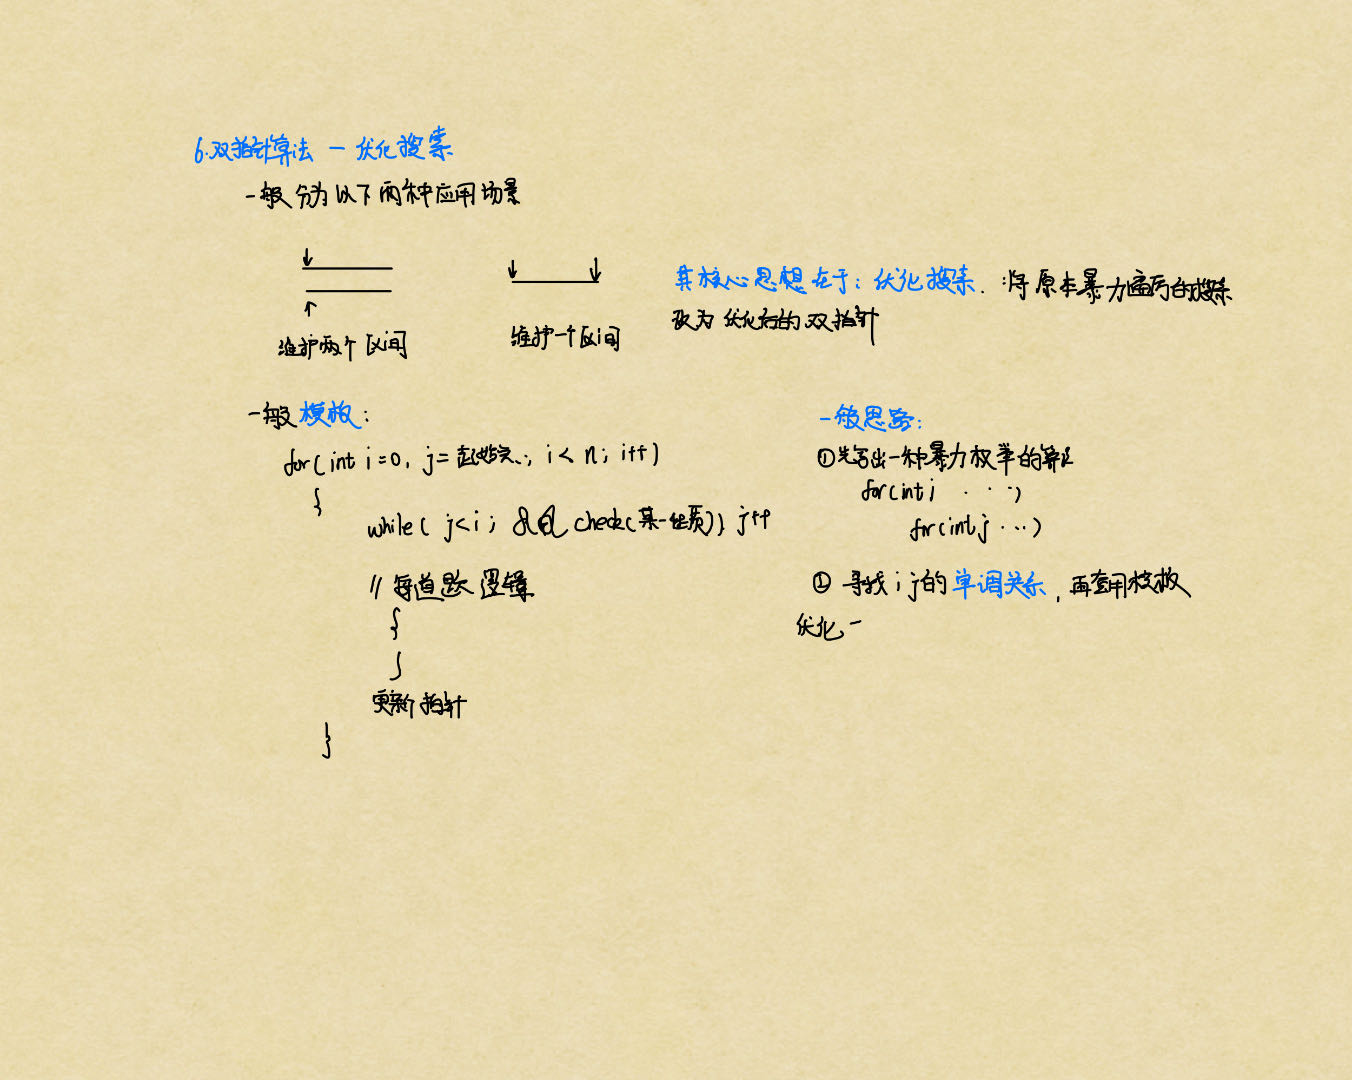 6.双指针算法 — 优化搜索
一般分为以下两种应用场景
维护两个区间
维护一个区间
其核心思想在于：优化搜索．将原本暴力遍历的搜索
改为优化后的双指针
一般模板：
for(int i=0, j=起始点; i<n; i++)
{
while( j<i; && check(某一性质)) j++
// 每道题逻辑
{
}
更新指针
}
一般思路：
①先写出一种暴力枚举的算法
for(int i ···)
for(int j ···)
② 寻找 i j的单调关系，再套用模板
优化一